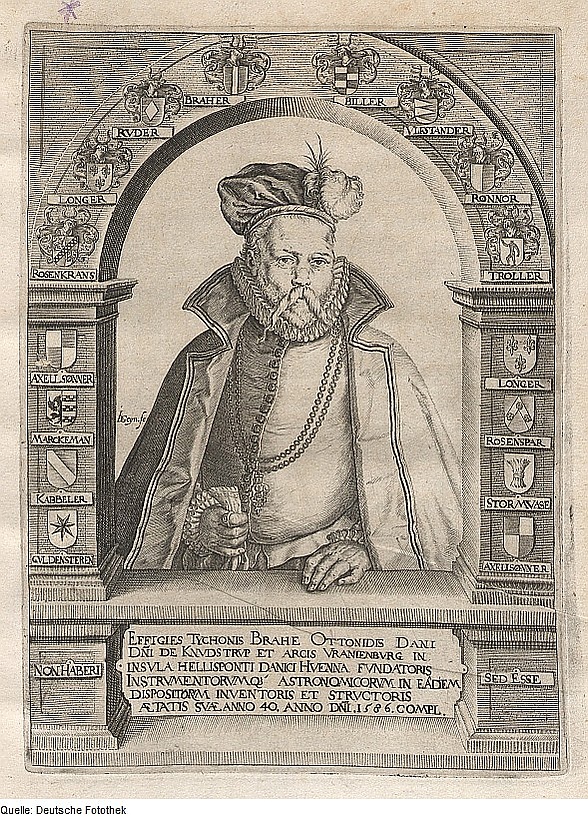 BRAHER
BILLER
RUDER
VLSTANDER
LONGER
RØNNOR
ROSENKRANS
TROLLER
AXELLSØNNER
LONGER
MARCKEMAN
ROSENSPAR
KABBELER
STORMVASE
GVLDENSTEREN
AXELLSØNNER
EFFIGIES TYCHONIS BRAHE OTTONIDIS DANI
DNI DE KNVDSTRVP ET ARCIS VRANIENBVRG IN
INSVLA HELLISPONTI DANICI HVENNA FVNDATORIS
INSTRVMENTORVMQ' ASTRONOMICORVM IN EADEM
DISPOSITORVM INVENTORIS ET STRVCTORIS
ÆTATIS SVÆ ANNO 40. ANNO DNI. 1586. COMPL.
NON HABERI
SED ESSE
Quelle: Deutsche Fotothek